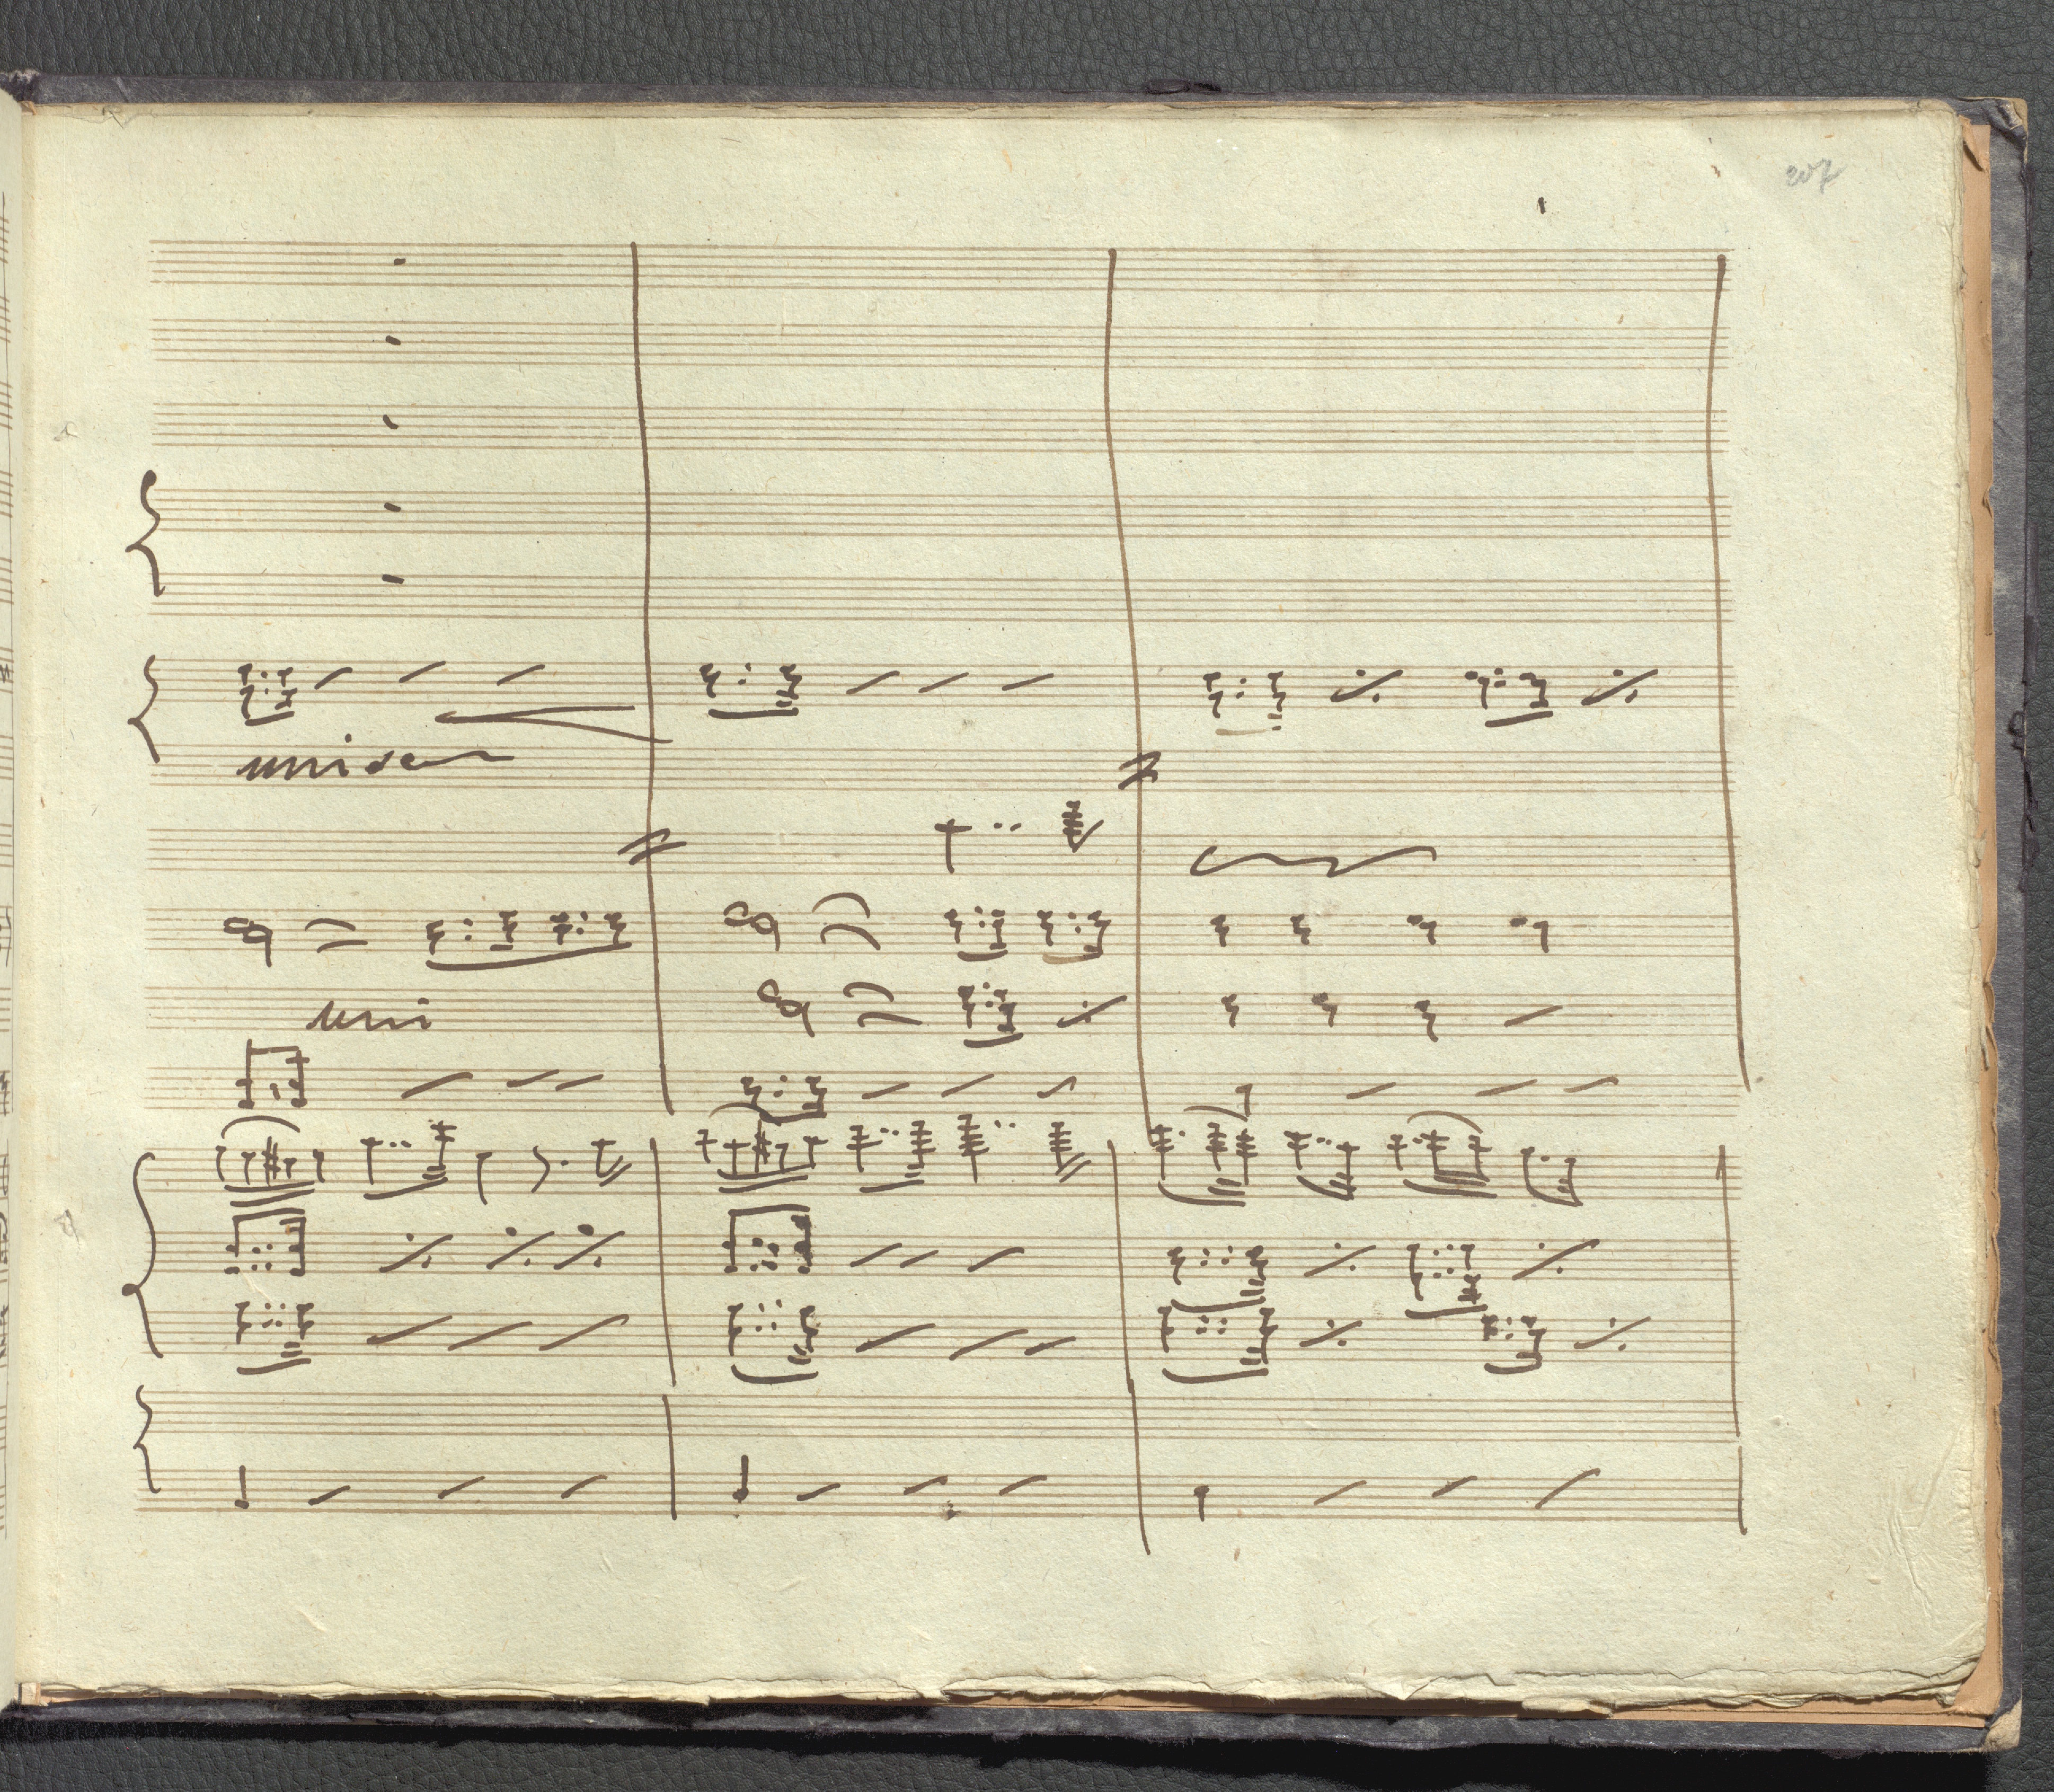 207
unison
uni